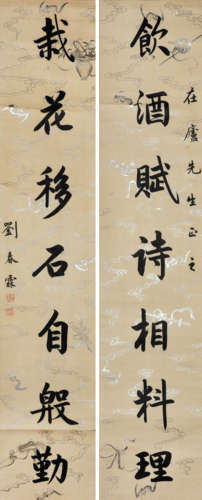 在廬先生正之
飲酒賦诗相料理
栽花移石自殷勤
劉春霖